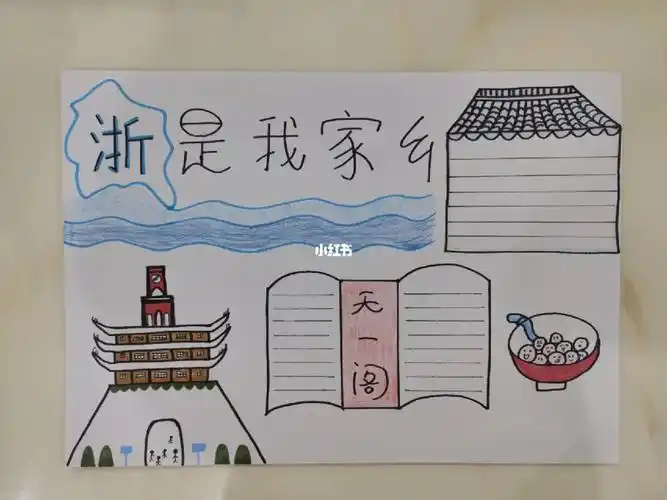 浙是我家乡
小红书
天一阁